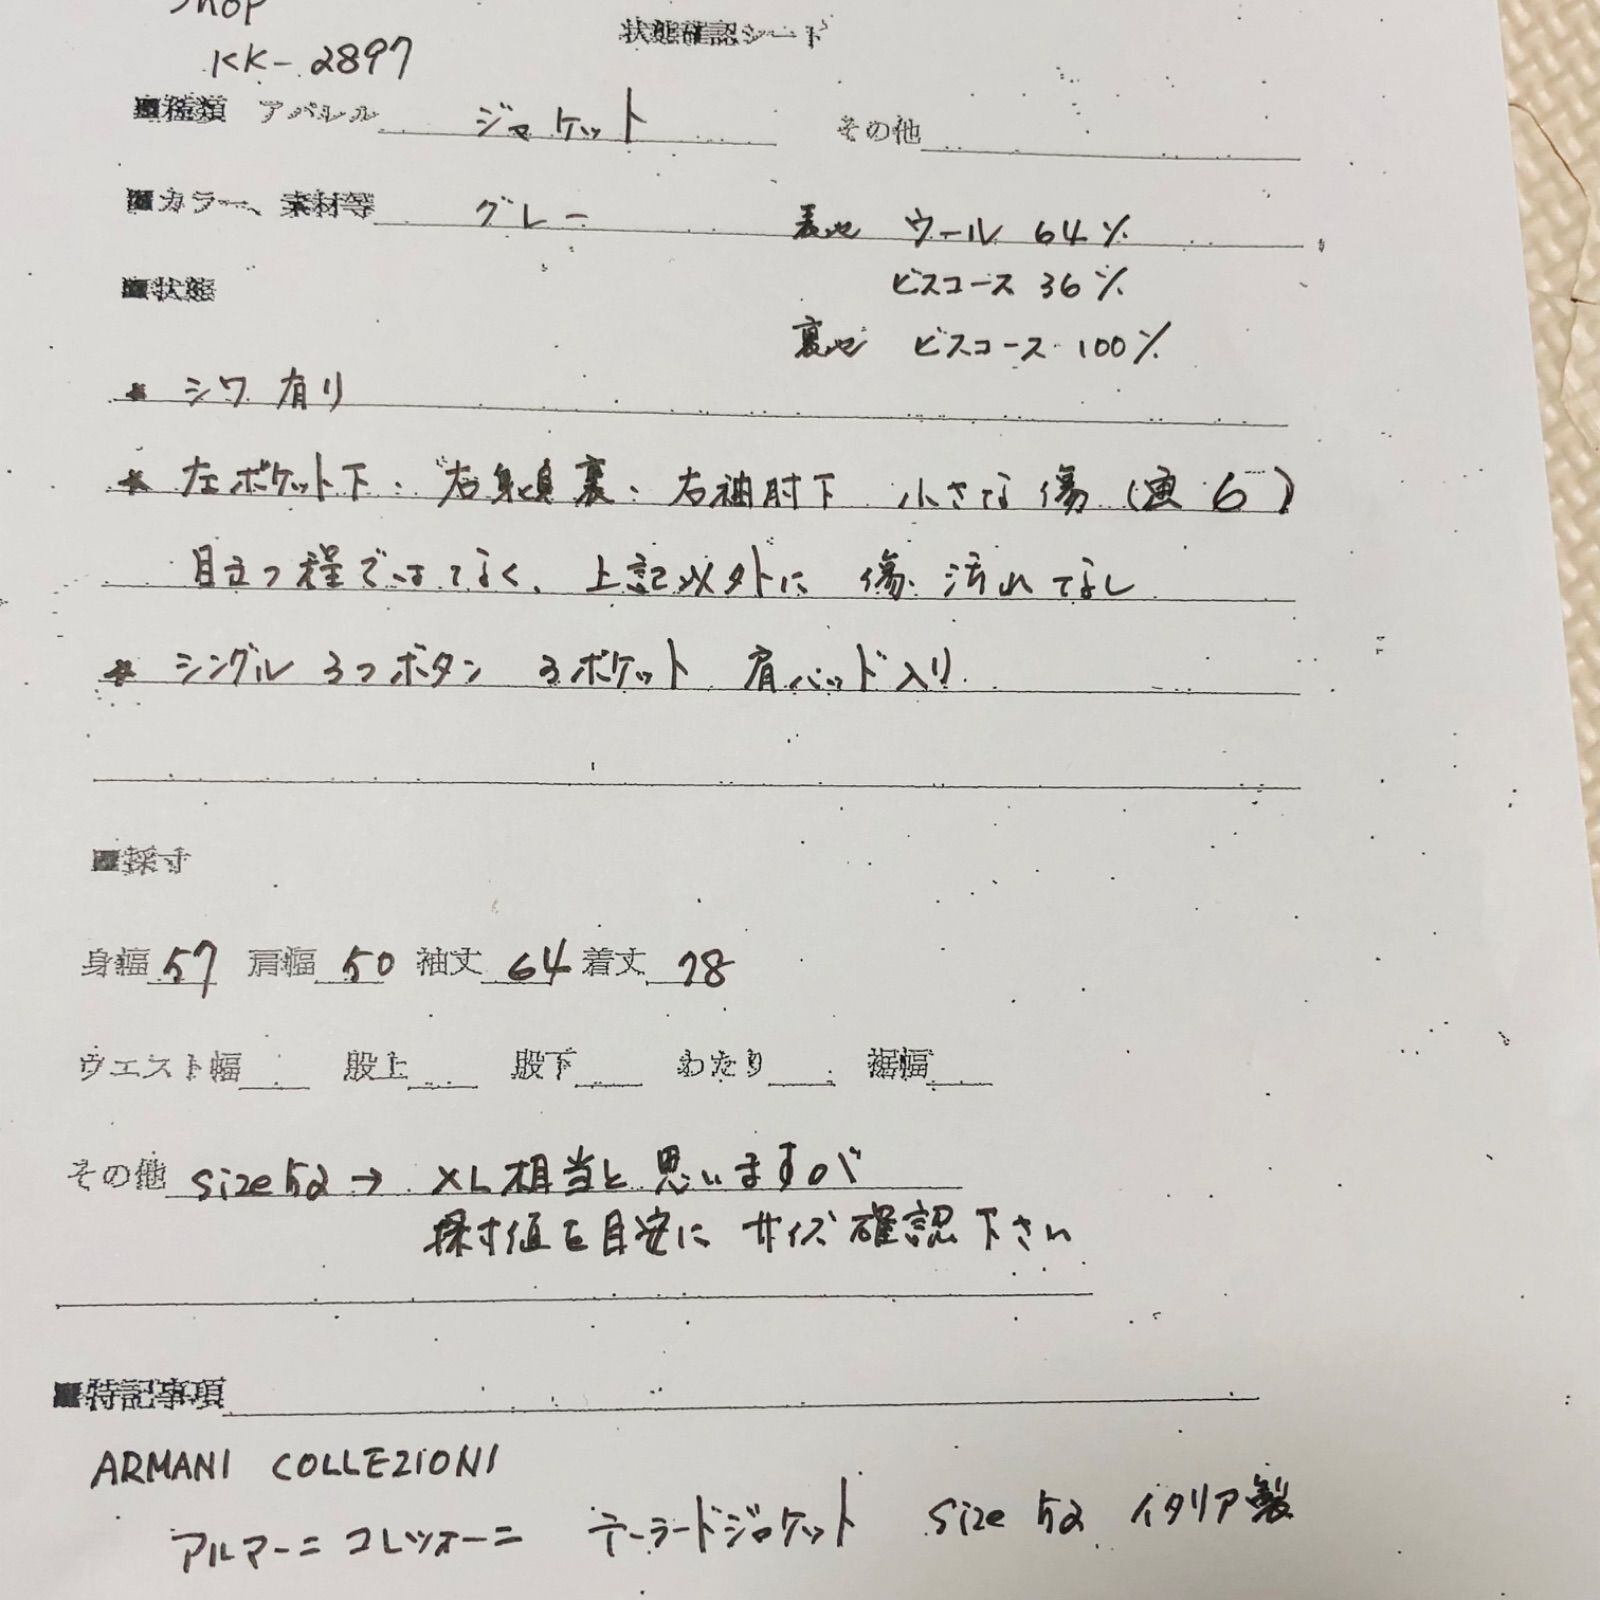 Shop
状態確認シート
KK-2897
■種類 アパレル ジャケット その他
■カラー、素材等 グレー 表地 ウール 64%
ビスコース 36%
■状態
裏地 ビスコース 100%
★ シワ有り
★ 左ポケット下・右身頃裏・右袖肘下 小さな傷(画6)
目立つ程ではなく、上記以外に傷・汚れなし
★ シングル 3つボタン 3ポケット 肩パッド入り
■採寸
身幅 57 肩幅 50 袖丈 64 着丈 78
ウエスト幅 股上 股下 わたり 裾幅
その他 size52→ XL相当と思いますが
採寸値を目安にサイズ確認下さい
■特記事項
ARMANI COLLEZIONI
アルマーニ コレツォーニ テーラードジャケット size 52 イタリア製